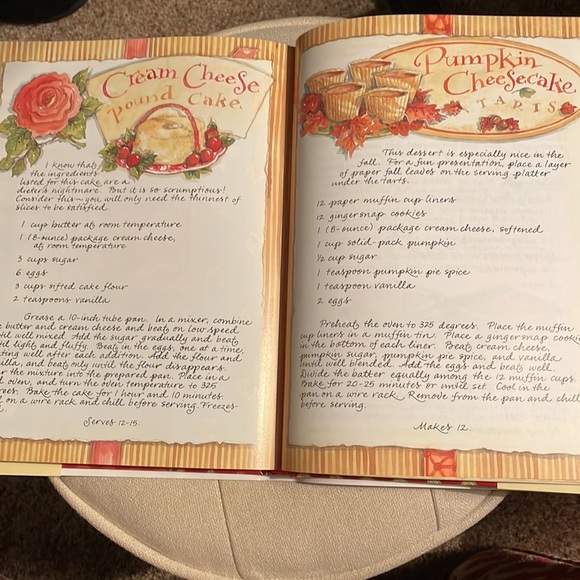 Cream Cheese
Pound Cake
I know that
the ingredients
listed for this cake are a
dieter's nightmare. But it is so scrumptious!
Consider this~you will only need the thinnest of
slices to be satisfied.
1 cup butter at room temperature
1 (8-ounce) package cream cheese,
at room temperature
3 cups sugar
6 eggs
3 cups sifted cake flour
2 teaspoons vanilla
Grease a 10-inch tube pan. In a mixer, combine
butter and cream cheese and beat on low speed
til well mixed. Add the sugar gradually and beat
til light and fluffy. Beat in the eggs, one at a time,
ting well after each addition. Add the flour and
illa, and beat only until the flour disappears.
r the mixture into the prepared pan. Place in a
oven, and turn the oven temperature to 325
rees. Bake the cake for 1 hour and 10 minutes.
l on a wire rack and chill before serving. Freezes
Serves 12-15.
Pumpkin
Cheesecake
TARTS
This dessert is especially nice in the
fall. For a fun presentation, place a layer
of paper fall leaves on the serving platter
under the tarts.
12 paper muffin cup liners
12 gingersnap cookies
1 (8-ounce) package cream cheese, softened
1 cup solid-pack pumpkin
1/2 cup sugar
1 teaspoon pumpkin pie spice
1 teaspoon vanilla
2 eggs
Preheat the oven to 325 degrees. Place the muffin
cup liners in a muffin tin. Place a gingersnap cookie
in the bottom of each liner. Beat cream cheese,
pumpkin, sugar, pumpkin pie spice, and vanilla
until well blended. Add the eggs and beat well.
Divide the batter equally among the 12 muffin cups.
Bake for 20-25 minutes or until set. Cool in the
pan on a wire rack. Remove from the pan and chill
before serving.
Makes 12.